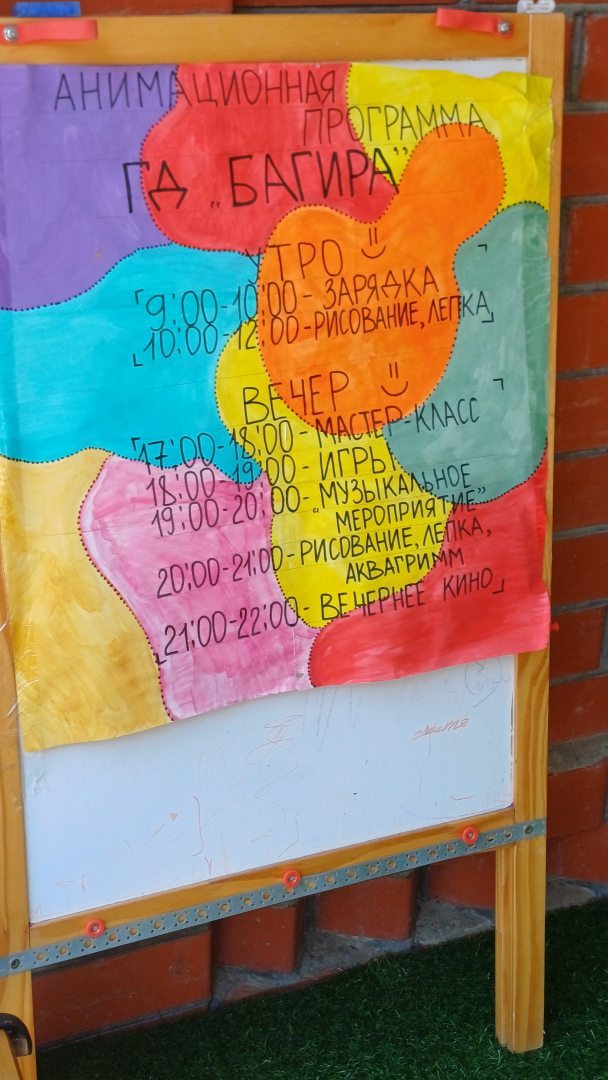 АНИМАЦИОННАЯ
ПРОГРАММА
ГД „БАГИРА”
УТРО
9:00-10:00 - ЗАРЯДКА
10:00-12:00 - РИСОВАНИЕ, ЛЕПКА
ВЕЧЕР
17:00-18:00 - МАСТЕР-КЛАСС
18:00-19:00 - ИГРЫ
19:00-20:00 - „МУЗЫКАЛЬНОЕ
МЕРОПРИЯТИЕ”
20:00-21:00 - РИСОВАНИЕ, ЛЕПКА,
АКВАГРИММ
21:00-22:00 - ВЕЧЕРНЕЕ КИНО